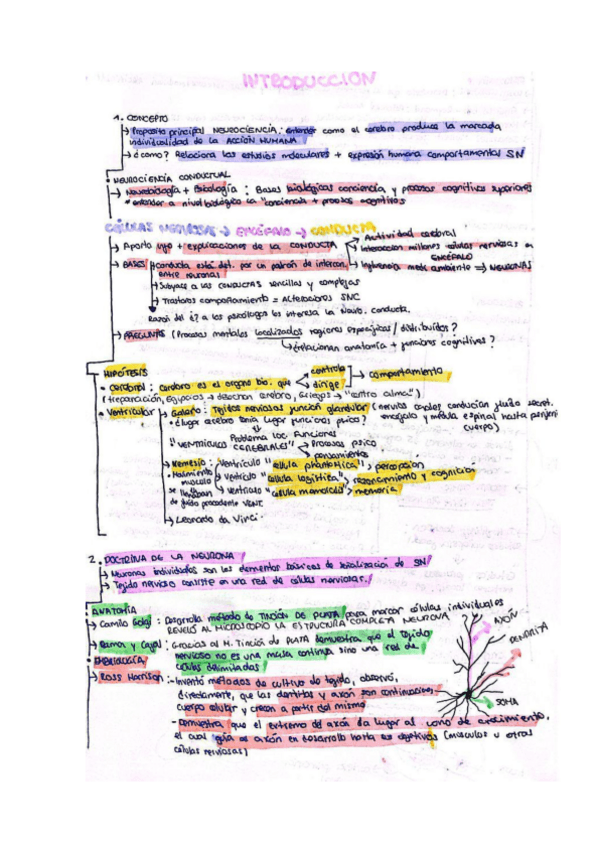 INTRODUCCION
1. CONCEPTO
→ Proposito principal NEUROCIENCIA: entender como el cerebro produce la marcada
individualidad de la ACCIÓN HUMANA
→ ¿como? Relaciona los estudios moleculares + expresión humana comportamental SN
• NEUROCIENCIA CONDUCTUAL
→ Neurobiología + Psicología: Bases biológicas conciencia y procesos cognitivos superiores
* entender a nivel biológico la "conciencia + procesos cognitivos
CÉLULAS NERVIOSAS → ENCÉFALO → CONDUCTA
→ Aporta + explicaciones de la CONDUCTA
Actividad cerebral
Interacción millones células nerviosas en
ENCÉFALO
Influencia medio ambiente ⇒ NEURONAS
→ BASES
conducta está det. por un patrón de intercon.
entre neuronas
→ Subyace a las conductas sencillas y complejas
→ Trastorno comportamiento = Alteraciones SNC
Razón del ¿? a los psicólogos les interesa la Neuro. conducta.
→ PREGUNTAS (Procesos mentales localizados regiones especificas / distribuidos?
→ ¿relacionan anatomía + funciones cognitivas?
HIPÓTESIS
• Cerebral: cerebro es el organo bio. que
controla
dirige
→ comportamiento
(trepanación, Egipcios → cerebro, Griegos → "centro alma")
• Ventricular
→ Galeno: Tejidos nerviosas función glandular (nervios conducían fluido secret.
encéfalo y médula espinal hasta
cuerpo)
• ¿lugar cerebro tenía lugar funciones psico?
Problema loc. Funciones
"VENTRÍCULOS CEREBRALES"
→ Procesos psico
→ pensamientos
→ Nemesio: ventrículo "cellula phantastica", percepcion
ventrículo "cellula logistica", razonamiento y cognición
ventrículo "célula memorialis", memoria
• Movimiento
musculo
se llenaban
de fluido procedente VENT.
→ Leonardo da Vinci.
2. DOCTRINA DE LA NEURONA
→ Neuronas individuales son los elementos básicos de señalización de SN
→ Tejido nervioso consiste en una red de células nerviosas.
ANATOMIA
→ Camilo Golgi: Desarrolla método de TINCIÓN DE PLATA para marcar células individuales
REVELÓ AL MICROSCOPIO LA ESTRUCTURA COMPLETA NEURONA
→ Ramon y Cajal: Gracias al M. Tinción de PLATA demuestra que el tejido
nervioso no es una masa continua sino una red de
células delimitadas
AXÓN
DENDRITA
SOMA
• EMBRIOLOGÍA
→ Ross Harrison: - Inventó métodos de cultivo de tejido, observó,
directamente, que las dentritas y axón son continuacion,
cuerpo celular y crecen a partir del mismo
- Demuestra que el extremo del axón da lugar al cono de crecimiento,
el cual guía el axón en desarrollo hasta es objetivos (músculos u otras
células nerviosas)